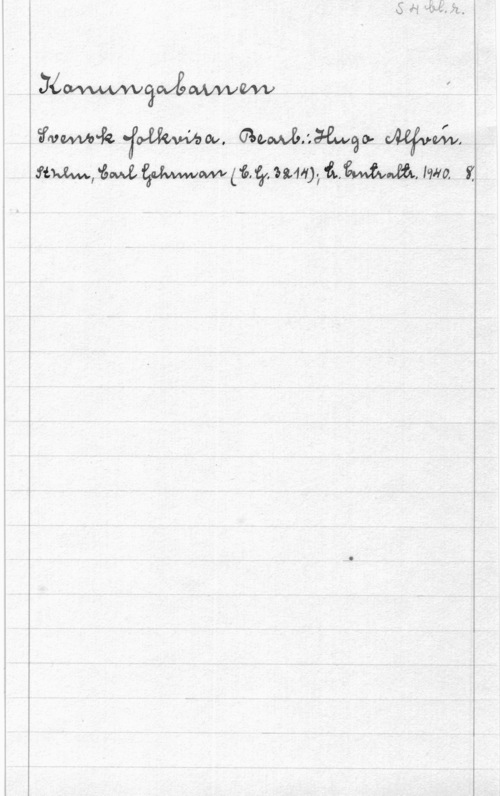 S 4 bl. k.
Konungabarnen
Svensk folkvisa. Bearb.: Hugo Alfvén.
Sthlm, Carl Gehrman (C.G. 3214); tr. Centraltr. 1940. 8.